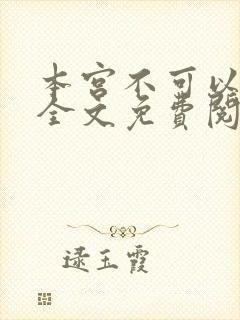 本宫不可以
全文免费阅
逯玉霞